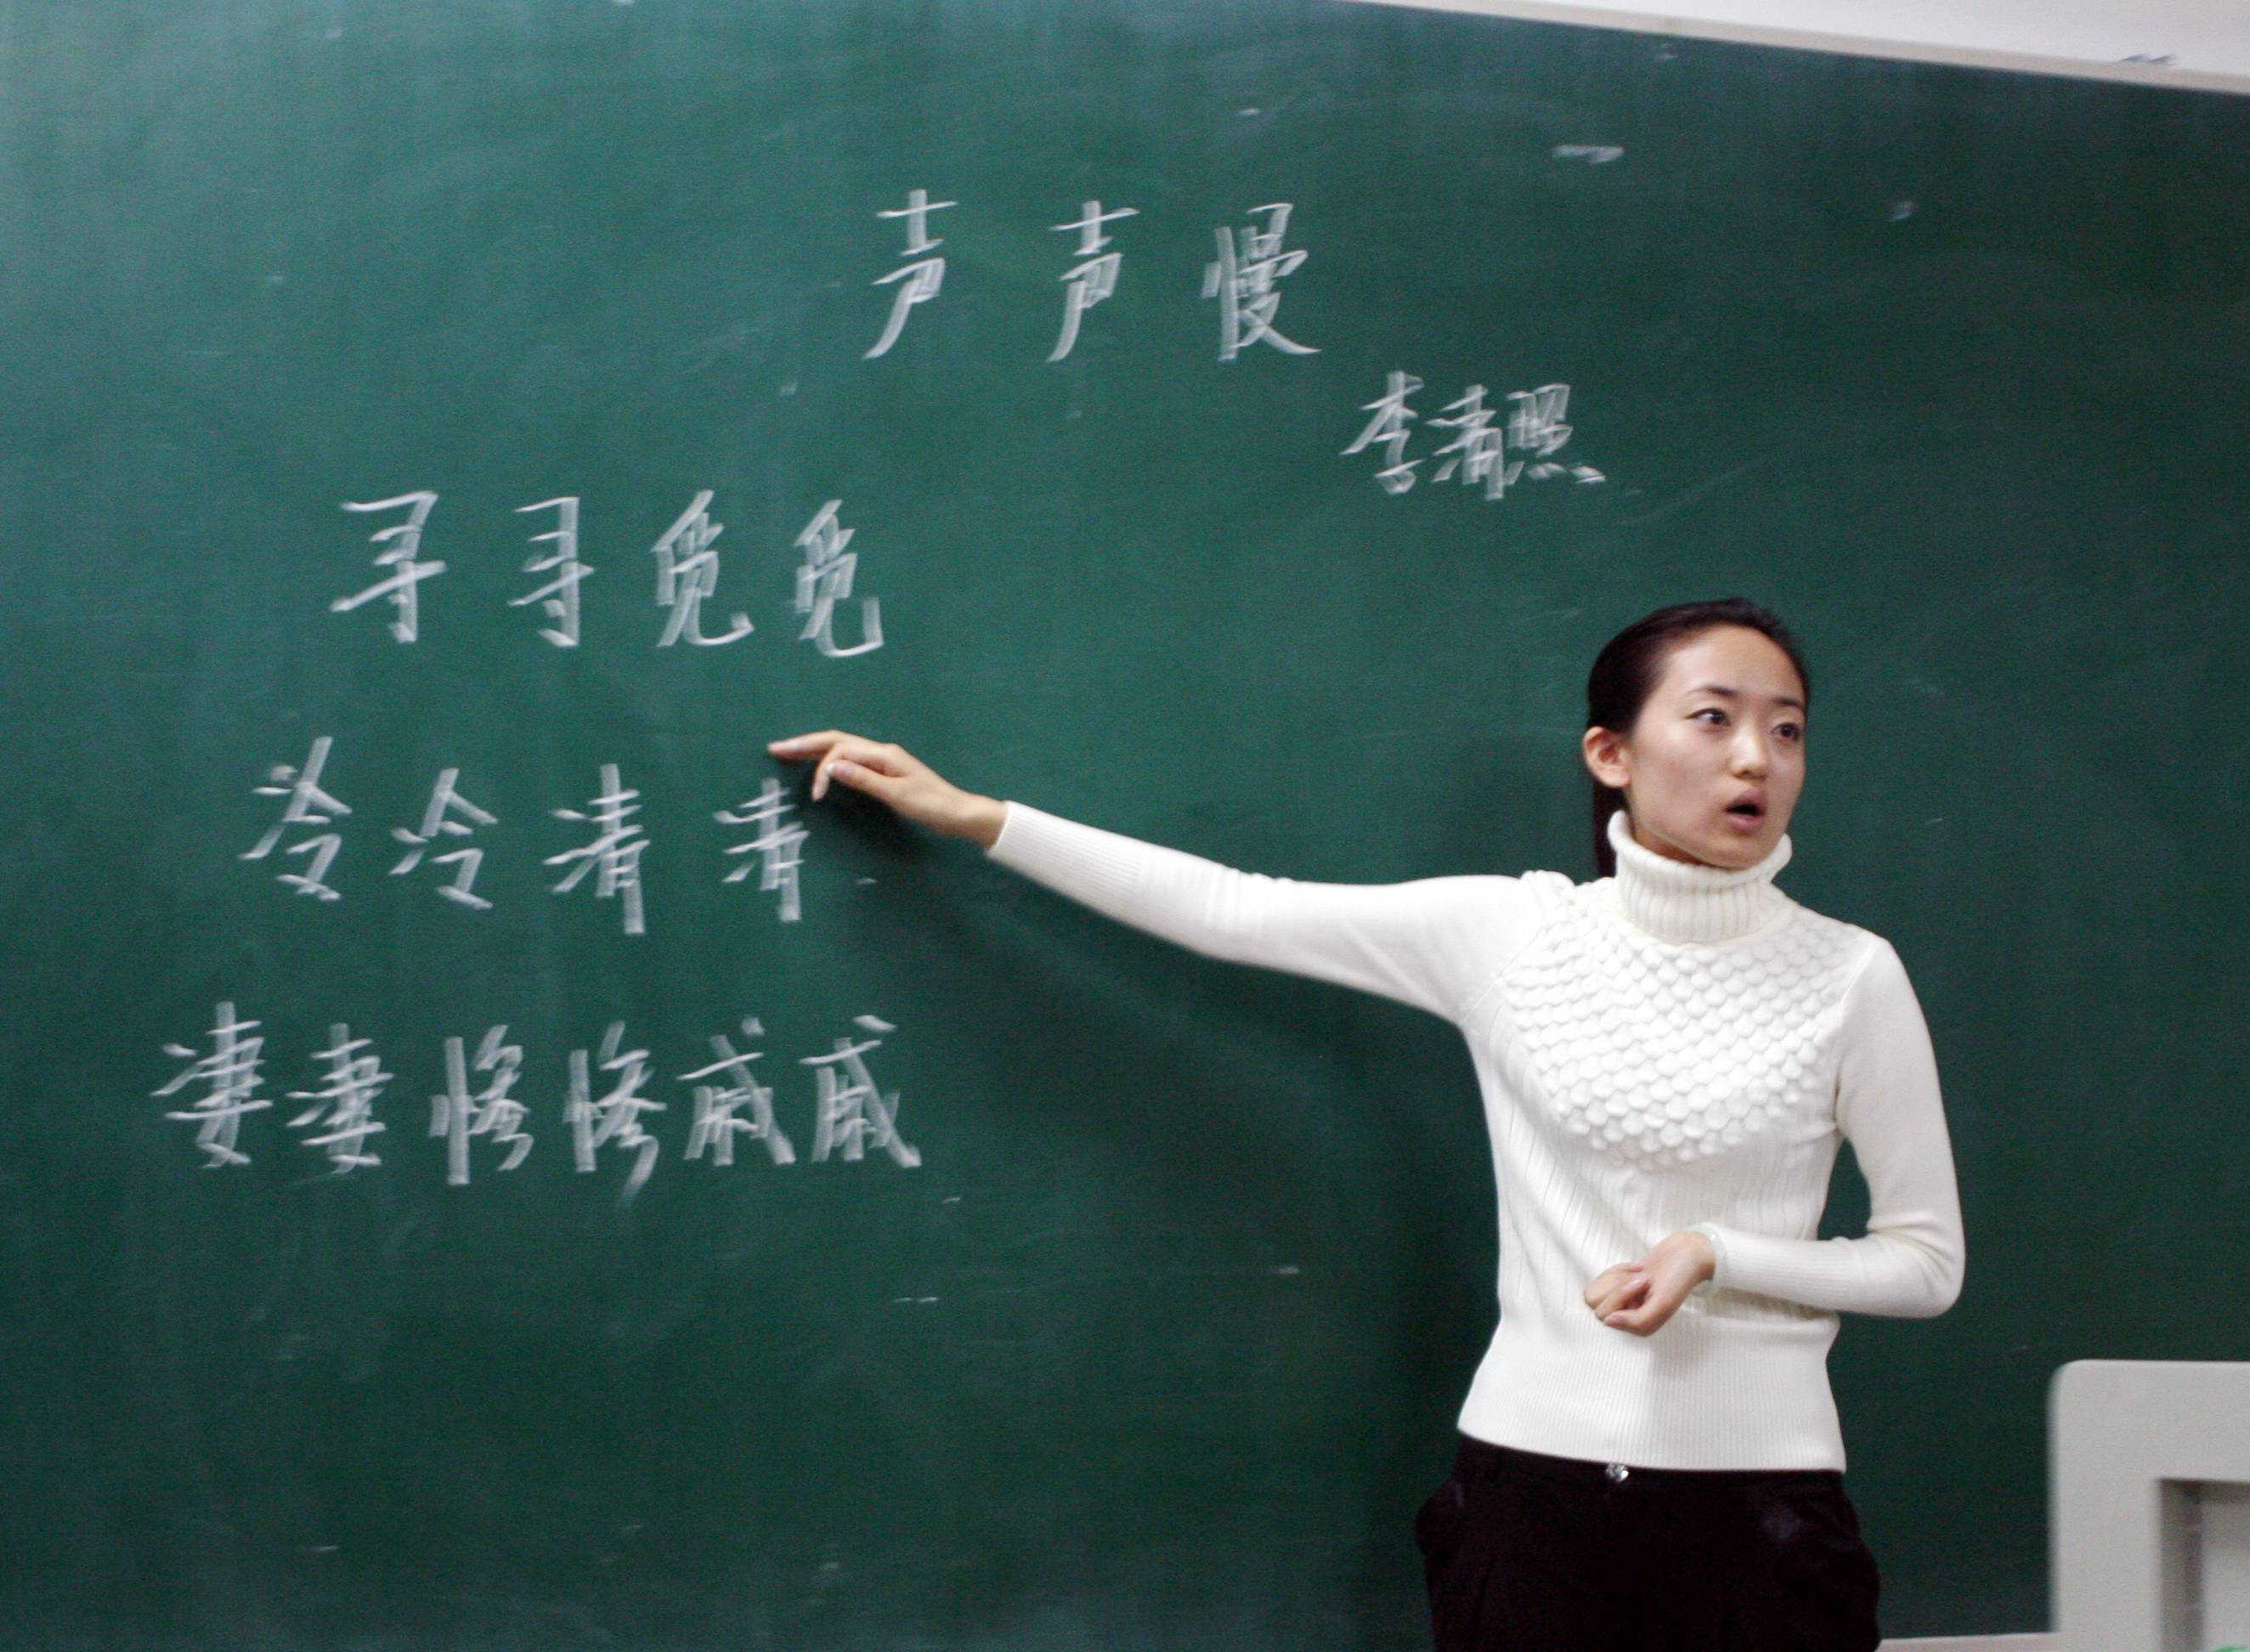 声声慢
李清照
寻寻觅觅
冷冷清清
凄凄惨惨戚戚